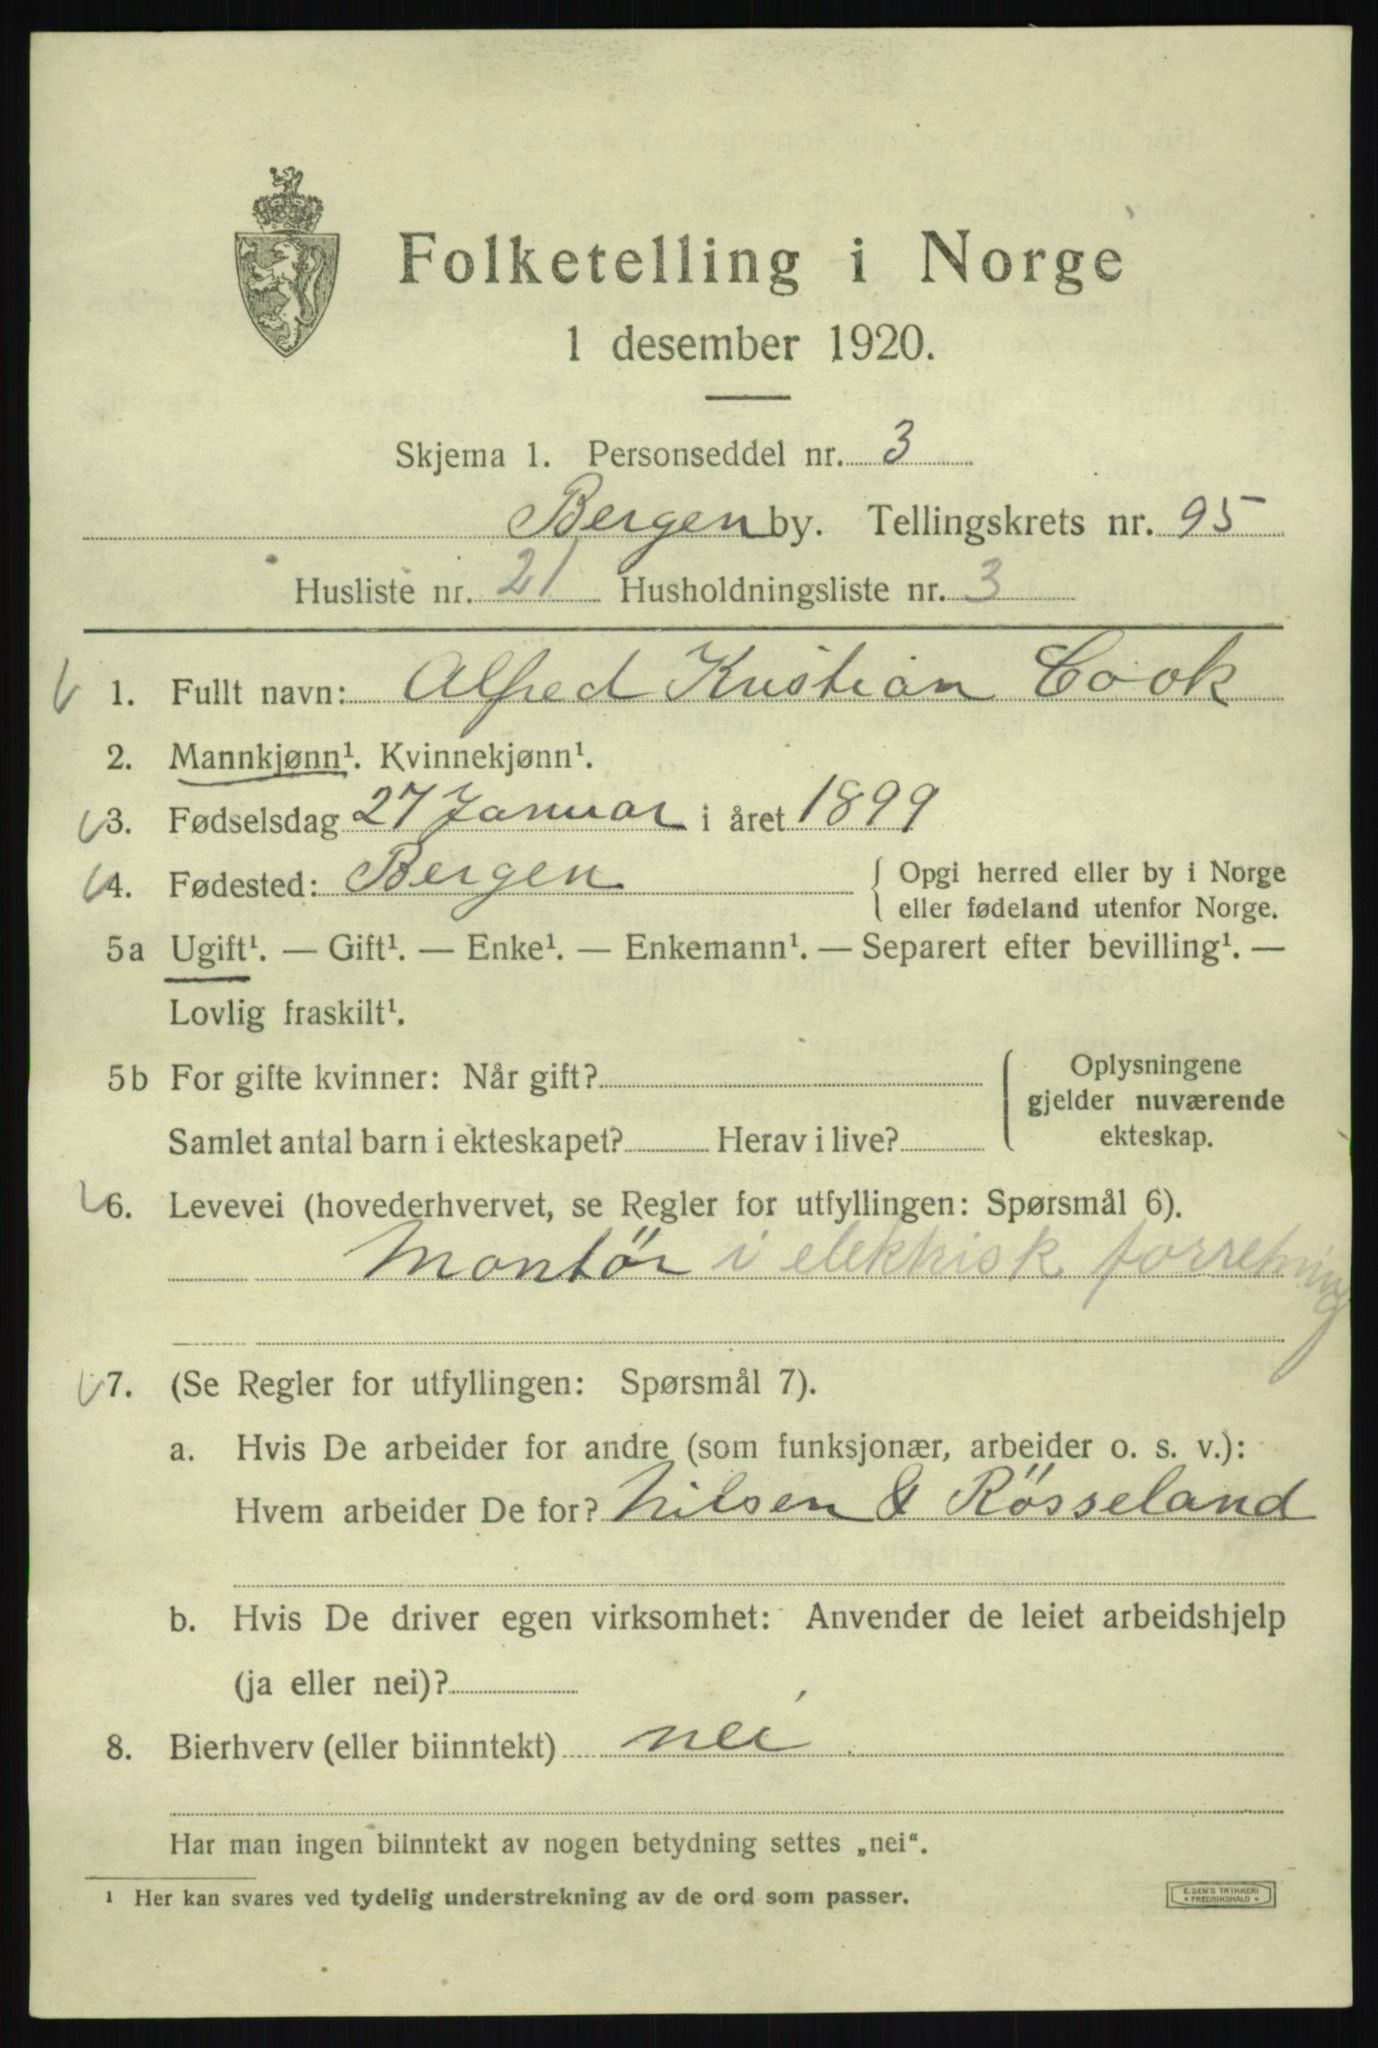 Folketelling i Norge
1 desember 1920.
Skjema 1. Personseddel nr. 3
Bergen by. Tellingskrets nr. 95
Husliste nr. 21 Husholdningsliste nr. 3
1. Fullt navn: Alfred Kristian Cook
2. Mannkjønn¹. Kvinnekjønn¹.
3. Fødselsdag 27 Januar i året 1899
4. Fødested: Bergen { Opgi herred eller by i Norge
eller fødeland utenfor Norge.
5a Ugift¹. — Gift¹. — Enke¹. — Enkemann¹. — Separert efter bevilling¹. —
Lovlig fraskilt¹.
5b For gifte kvinner: Når gift? { Oplysningene
gjelder nuværende
Samlet antal barn i ekteskapet? Herav i live? ekteskap.
6. Levevei (hovederhvervet, se Regler for utfyllingen: Spørsmål 6).
Montør i elektrisk forretning
7. (Se Regler for utfyllingen: Spørsmål 7).
a. Hvis De arbeider for andre (som funksjonær, arbeider o. s. v.):
Hvem arbeider De for? Nilsen & Rösseland
b. Hvis De driver egen virksomhet: Anvender de leiet arbeidshjelp
(ja eller nei)?
8. Bierhverv (eller biinntekt) nei
Har man ingen biinntekt av nogen betydning settes „nei“.
1 Her kan svares ved tydelig understrekning av de ord som passer.
E. SEM'S TRYKKERI
* FREDRIKSHALD *